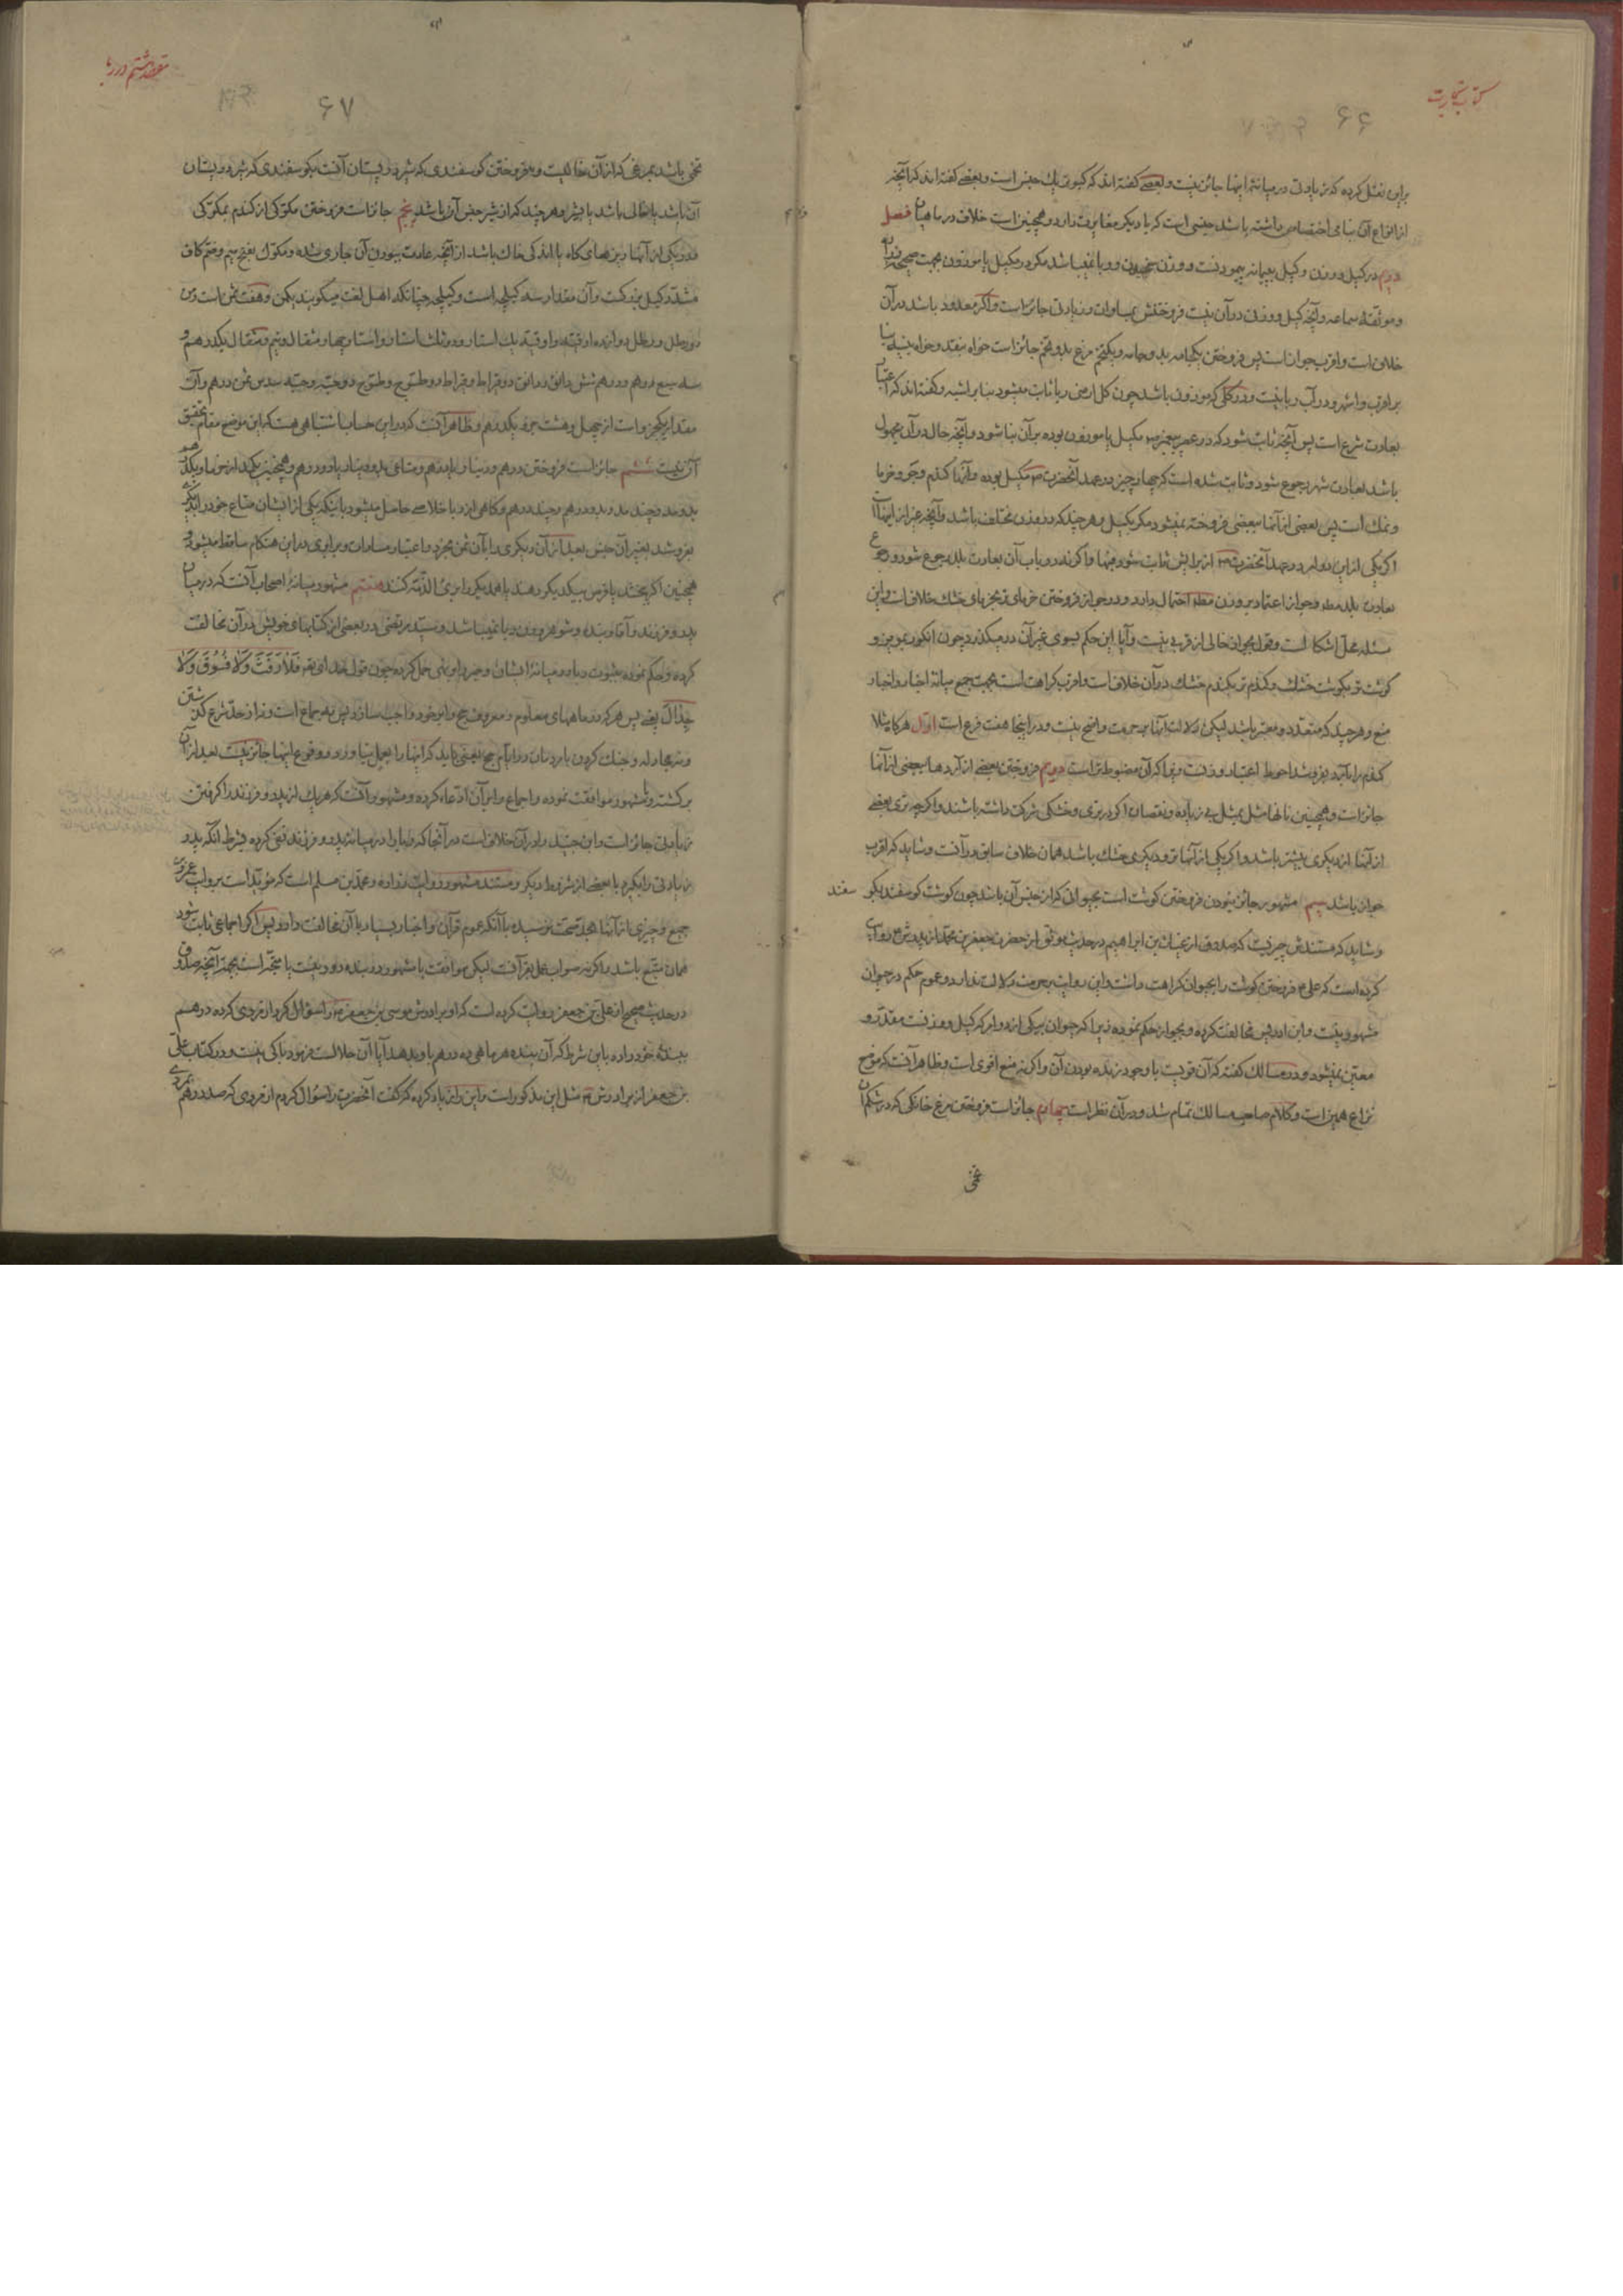 کتاب تجارت
۶۶
براین نقل کرده که زیادتی در میانهٔ اینها جایز نیست و بعضی گفته‌اند که کبوتر یک جنس است و بعضی گفته‌اند که آنچه
از انواع آن بنامی اختصاص داشته باشد جنسی است که با دیگر مغایرت دارد و همچنین است خلاف در ماهیان فصل
دویم در کیل و وزن و کیل به پیمانه پیمودنست و وزن سنجیدن و ربا نمیباشد مگر در مکیل یا موزون بجهت صحیحه زراره
و موثقهٔ سماعه و آنچه کیل و وزن در آن نیست فروختنش بمساوات و زیادتی جایز است و اگر معدود باشد در آن
خلاف است و اقرب جواز است پس فروختن یکجامه بدو جامه و یکتخم مرغ بدو تخم جایز است خواه بنقد و خواه بنسیه بنا
بر اقرب و اشهر و در آب ربا نیست و در گلی که موزون باشد چون گل ارمنی ربا ثابت میشود بنا بر اشبه و گفته‌اند که اعتبار
بعادت شرع است پس آنچه ثابت شود که در عصر پیغمبر ص مکیل یا موزون بوده بر آن بنا شود و آنچه حال در آن مجهول
باشد بعادت شهر رجوع شود و ثابت شده است که چهار چیز در عهد آنحضرت ص مکیل بوده و آنها گندم و جو و خرما
و نمک است پس بعضی از آنها ببعضی فروخته نمیشود مگر بکیل و هر چند که در وزن مختلف باشد و آنچه غیر از اینها است
اگر یکی از این دو امر در عهد آنحضرت ص از برایش ثابت شود فبها و اگر نه در باب آن بعادت بلد رجوع شود و رجوع
بعادت بلد مط و جواز اعتماد بر وزن مط احتمال دارد و در جواز فروختن خرمای تر بخرمای خشک خلاف است و این
مسئله محل اشکال است و قول بجواز خالی از قربی نیست و آیا این حکم بسوی غیر آن در میگذرد چون انگور بمویز و
گوشت تر بگوشت خشک و گندم تر بگندم خشک در آن خلاف است و اقرب کراهت است بجهت جمع میانهٔ اخبار و اخبار
منع و هر چند که متعدد و معتبر باشد لیکن دلالت آنها بر حرمت واضح نیست و در اینجا هفت فرع است اول هرگاه مثلا
گندم را بآرد بفروشد احوط اعتبار وزنست زیرا که آن مضبوط تر است دویم فروختن بعضی از آردها ببعضی از آنها
جایز است و همچنین نانها مثل بمثل بی زیاده و نقصان اگر در تری و خشکی شرکت داشته باشند و اگر چه تری بعضی
از آنها از دیگری بیشتر باشد و اگر یکی از آنها تر و دیگری خشک باشد همان خلاف سابق در آنست و شاید که اقرب
جواز باشد سیم مشهور جایز نبودن فروختن گوشت است بحیوانی که از جنس آن باشد چون گوشت گوسفند بگوسفند
و شاید که مستندش چیزیست که صدوق از غیاث بن ابراهیم در حدیث موثق از حضرت جعفر بن محمد از پدرش ع روایت
کرده است که علی ع فروختن گوشت را بحیوان کراهت داشت و این روایت بر حرمت دلالت ندارد و عموم حکم در حیوان
مشهور نیست و ابن ادریس مخالفت کرده و بجواز حکم نموده زیرا که حیوان یکی از دو امر که کیل و وزنست مقدر و
معین نمیشود و در مسالک گفته که آن قویست با وجود زنده بودن آن و اگر نه منع اقوی است و ظاهر آنست که موضع
نزاع همین است و کلام صاحب مسالک تمام شد و در آن نظر است چهارم جایز است فروختن مرغ خانگی که در شکم آن
تخمی
مقصد هشتم در ربا
۶۷
تخمی باشد بمرغی که از آن خالیست و فروختن گوسفندی که شیر در پستان آنست بگوسفندی که شیر در پستان
آن باشد یا خالی باشد یا بشیر و هر چند که از شیر جنس آن باشد پنجم جایز است فروختن مکوکی از گندم بمکوکی
که در یکی از آنها ریزهای کاه یا اندکی خاک باشد از آنچه عادت ببودن آن جاری شده و مکوک بفتح میم و ضم کاف
مشدد کیل بزرگیست و آن مقدار سه کیلجه است و کیلجه چنانکه اهل لغت میگویند یکمن و هفت ثمن است و من
دو رطل و رطل دوازده اوقیه و اوقیه یک استار و دو ثلث استار و استار چهار مثقال و نیم و مثقال یکدرهم و
سه سبع درهم و درهم شش دانق و دانق دو قیراط و قیراط دو طسوج و طسوج دو حبه و حبه سدس ثمن درهم و آن
مقدار یکجزو است از چهل و هشت جزو یکدرهم و ظاهر آنست که در این حساب اشتباهی هست که این موضع مقام تحقیق
آن نیست ششم جایز است فروختن درهم و دینار بدرهم و متاعی بدو دینار یا دو درهم و همچنین یکمد از خرما و یکدرهم
بدو مد و چند مد و بدو درهم و چند درهم و گاهی از ربا خلاصی حاصل میشود باینکه یکی از ایشان متاع خود را بدیگری
بفروشد بغیر آن جنس بعد از آن دیگری را بآن ثمن بخرد و اعتبار مساوات و برابری در این هنگام ساقط میشود و
همچنین اگر ببخشد یا قرض بیکدیگر دهند یا همدیگر را بری الذمه کنند هفتم مشهور میانهٔ اصحاب آنست که در میان
پدر و فرزند و آقا و بنده و شوهر و زن ربا نمیباشد و سید مرتضی در بعضی از کتابهای خویش در آن مخالفت
کرده و حکم نموده بثبوت ربا در میانهٔ ایشان و خبر را بر نهی حمل کرده چون قول خدای تعالی فَلا رَفَثَ وَلا فُسُوقَ وَلا
جِدالَ یعنی پس هر که در ماههای معلوم و معروف حج را بر خود واجب سازد پس نه جماع است و نه از حد شرع گذشتن
و نه مجادله و جنگ کردن با مردمان در ایام حج یعنی باید که اینها را بعمل نیاورد و وقوع اینها جایز نیست بعد از آن
برگشته و با مشهور موافقت نموده و اجماع را بر آن ادعاء کرده و مشهور آنست که هر یک از پدر و فرزند را گرفتن
زیادتی جایز است و ابن جنید را در آن خلاف است در آنجا که ربا را در میانهٔ پدر و فرزند نفی کرده بشرط آنکه پدر
زیادتی را بگیرد با بعضی از شروط دیگر و مستند مشهور روایت زراره و محمد بن مسلم است که مؤید است بروایت عمرو بن
جمیع و چیزی از آنها بحد صحت نرسیده با آنکه عموم قرآن و اخبار بسیار با آن مخالفت دارد پس اگر اجماعی ثابت شود
همان متبع باشد و اگر نه صواب عمل بقرآنست لیکن موافقت با مشهور در بنده دور نیست بجهت آنچه صدوق
در حدیث صحیح از علی بن جعفر روایت کرده است که او برادرش موسی بن جعفر ع را سؤال کرد از مردی که ده درهم
ببندهٔ خود داده باین شرط که آن بنده هر ماهی ده درهم باو بدهد آیا آن حلالست فرمود باکی نیست و در کتاب علی
بن جعفر از برادرش ع مثل این مذکور است و این را زیاد کرده که گفت آنحضرت را سؤال کردم از مردی که صد درهم بمردی